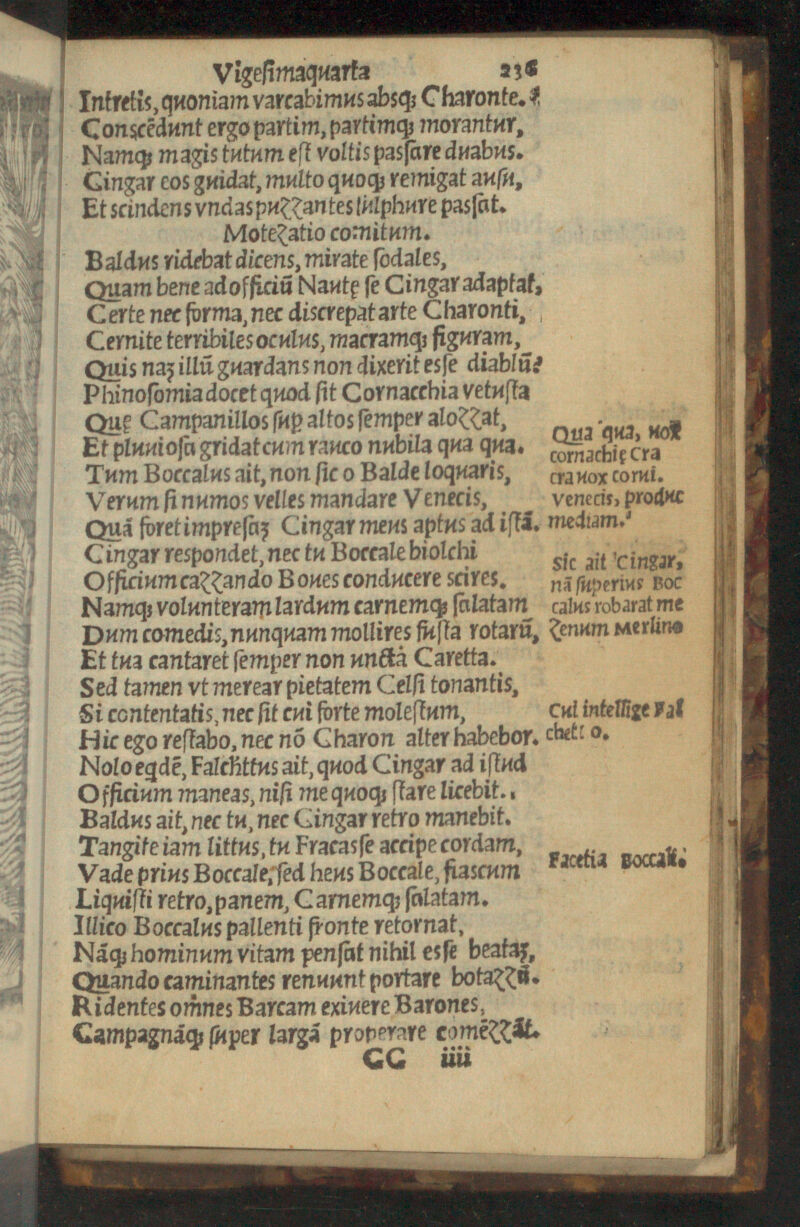 Vigeſimaquarta 236
Intretis, quoniam varcabimus absq; Charonte.
Conscēdunt ergo partim, partimq; morantur,
Namq; magis tutum eſt voltis pasſare duabus.
Cingar eos guidat, multo quoq; remigat auſu,
Et scindens vndas puzzantes ſulphure pasſat.
Motezatio comitum.
Baldus ridebat dicens, mirate ſodales,
Quam bene ad officiū Nautę ſe Cingar adaptat,
Certe nec forma, nec discrepat arte Charonti,
Cernite terribiles oculus, macramq; figuram,
Quis naʒ illū guardans non dixerit esſe diablū?
Phinoſomia docet quod ſit Cornacchia vetuſta
Quę Campanillos ſuꝑ altos ſemper alozzat,
Et pluuioſa gridat cum rauco nubila qua qua.
Tum Boccalus ait, non ſic o Balde loquaris,
Verum ſi numos velles mandare Venecis,
Quā foret impreſaʒ Cingar meus aptus ad iſtā.
Cingar respondet, nec tu Boccale biolchi
Officium cazzando Boues conducere scires.
Namq; volunteram lardum carnemq; ſalatam
Dum comedis, nunquam mollires fuſta rotarū,
Et tua cantaret ſemper non uncta Caretta.
Sed tamen vt merear pietatem Celſi tonantis,
Si contentatis, nec ſit cui forte moleſtum,
Hic ego reſtabo, nec nō Charon alter habebor.
Nolo eqdē, Falchttus ait, quod Cingar ad iſtud
Officium maneas, niſi me quoq; ſtare licebit.
Baldus ait, nec tu, nec Cingar retro manebit.
Tangite iam littus, tu Fracasſe accipe cordam,
Vade prius Boccale, ſed heus Boccale, fiascum
Liquiſti retro, panem, Carnemq; ſalatam.
Illico Boccalus pallenti fronte retornat,
Nāq; hominum vitam penſat nihil esſe beataʒ,
Quando caminantes renuunt portare botazzū.
Ridentes om̄nes Barcam exiuere Barones,
Campagnāq; ſuper largā properare comēzzāt.
CC iiii
Qua qua, uox
cornachię Cra
cra uox corui.
Venecis, produc
mediam.
Sic ait Cingar,
nā ſuperius Boc
calus robarat me
zenum Merlino
Cui intellige Fal
chetto.
Facetia Boccali.